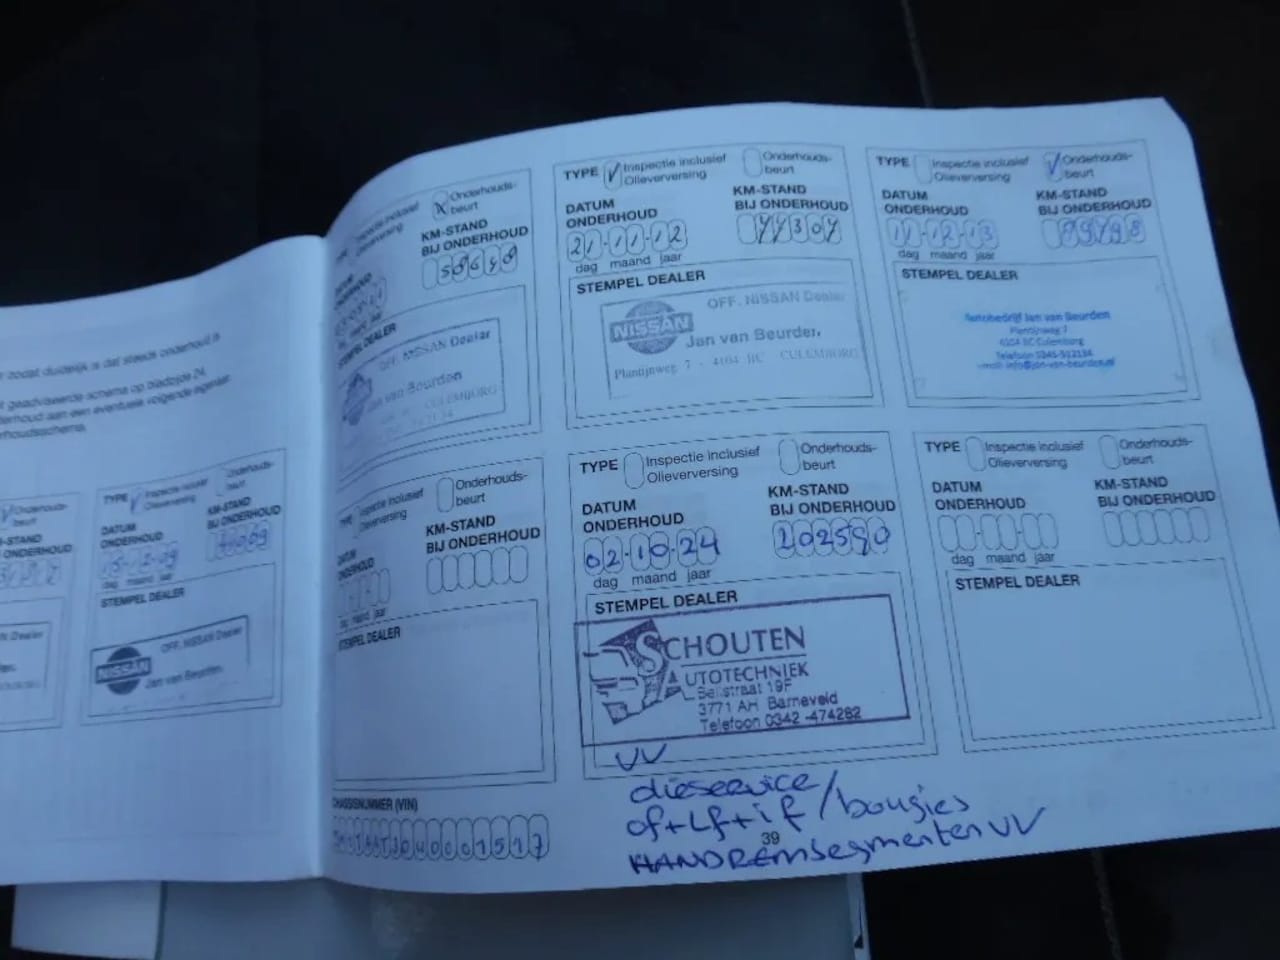 zodat duidelijk is dat steeds onderhoud is
geadviseerde schema op bladzijde 24,
aan een eventuele volgende eigenaar
Onderhouds-
beurt
BIJ ONDERHOUD
TYPE Inspectie inclusief
Olieverversing
Onderhouds-
beurt
DATUM
ONDERHOUD
KM-STAND
BIJ ONDERHOUD
dag maand jaar
STEMPEL DEALER
NISSAN
OFF. NISSAN Dealer
Jan van Beurden
Inspectie inclusief
Olieverversing
X Onderhouds-
beurt
KM-STAND
BIJ ONDERHOUD
50648
STEMPEL DEALER
OFF. NISSAN Dealer
Jan van Beurden
CULEMBORG
TYPE Inspectie inclusief
Olieverversing
Onderhouds-
beurt
DATUM
ONDERHOUD
21-11-12
dag maand jaar
KM-STAND
BIJ ONDERHOUD
77307
STEMPEL DEALER
NISSAN
OFF. NISSAN Dealer
Jan van Beurden
Plantijnweg 7 - 4104 BC CULEMBORG
TYPE Inspectie inclusief
Olieverversing
Onderhouds-
beurt
DATUM
ONDERHOUD
11-12-13
dag maand jaar
KM-STAND
BIJ ONDERHOUD
STEMPEL DEALER
Autobedrijf Jan van Beurden
Plantijnweg 7
4104 BC Culemborg
Telefoon 0345-512134
email: info@jan-van-beurden.nl
Inspectie inclusief
Olieverversing
Onderhouds-
beurt
DATUM
ONDERHOUD
dag maand jaar
KM-STAND
BIJ ONDERHOUD
STEMPEL DEALER
TYPE Inspectie inclusief
Olieverversing
Onderhouds-
beurt
DATUM
ONDERHOUD
02-10-24
dag maand jaar
KM-STAND
BIJ ONDERHOUD
202590
STEMPEL DEALER
SCHOUTEN
AUTOTECHNIEK
19F
3771 AH Barneveld
Telefoon 0342-474282
TYPE Inspectie inclusief
Olieverversing
Onderhouds-
beurt
DATUM
ONDERHOUD
dag maand jaar
KM-STAND
BIJ ONDERHOUD
STEMPEL DEALER
VV
olieservice
of+Lf+if/bougies
HANDREMsegmenten VV
CHASSISNUMMER (VIN)
39